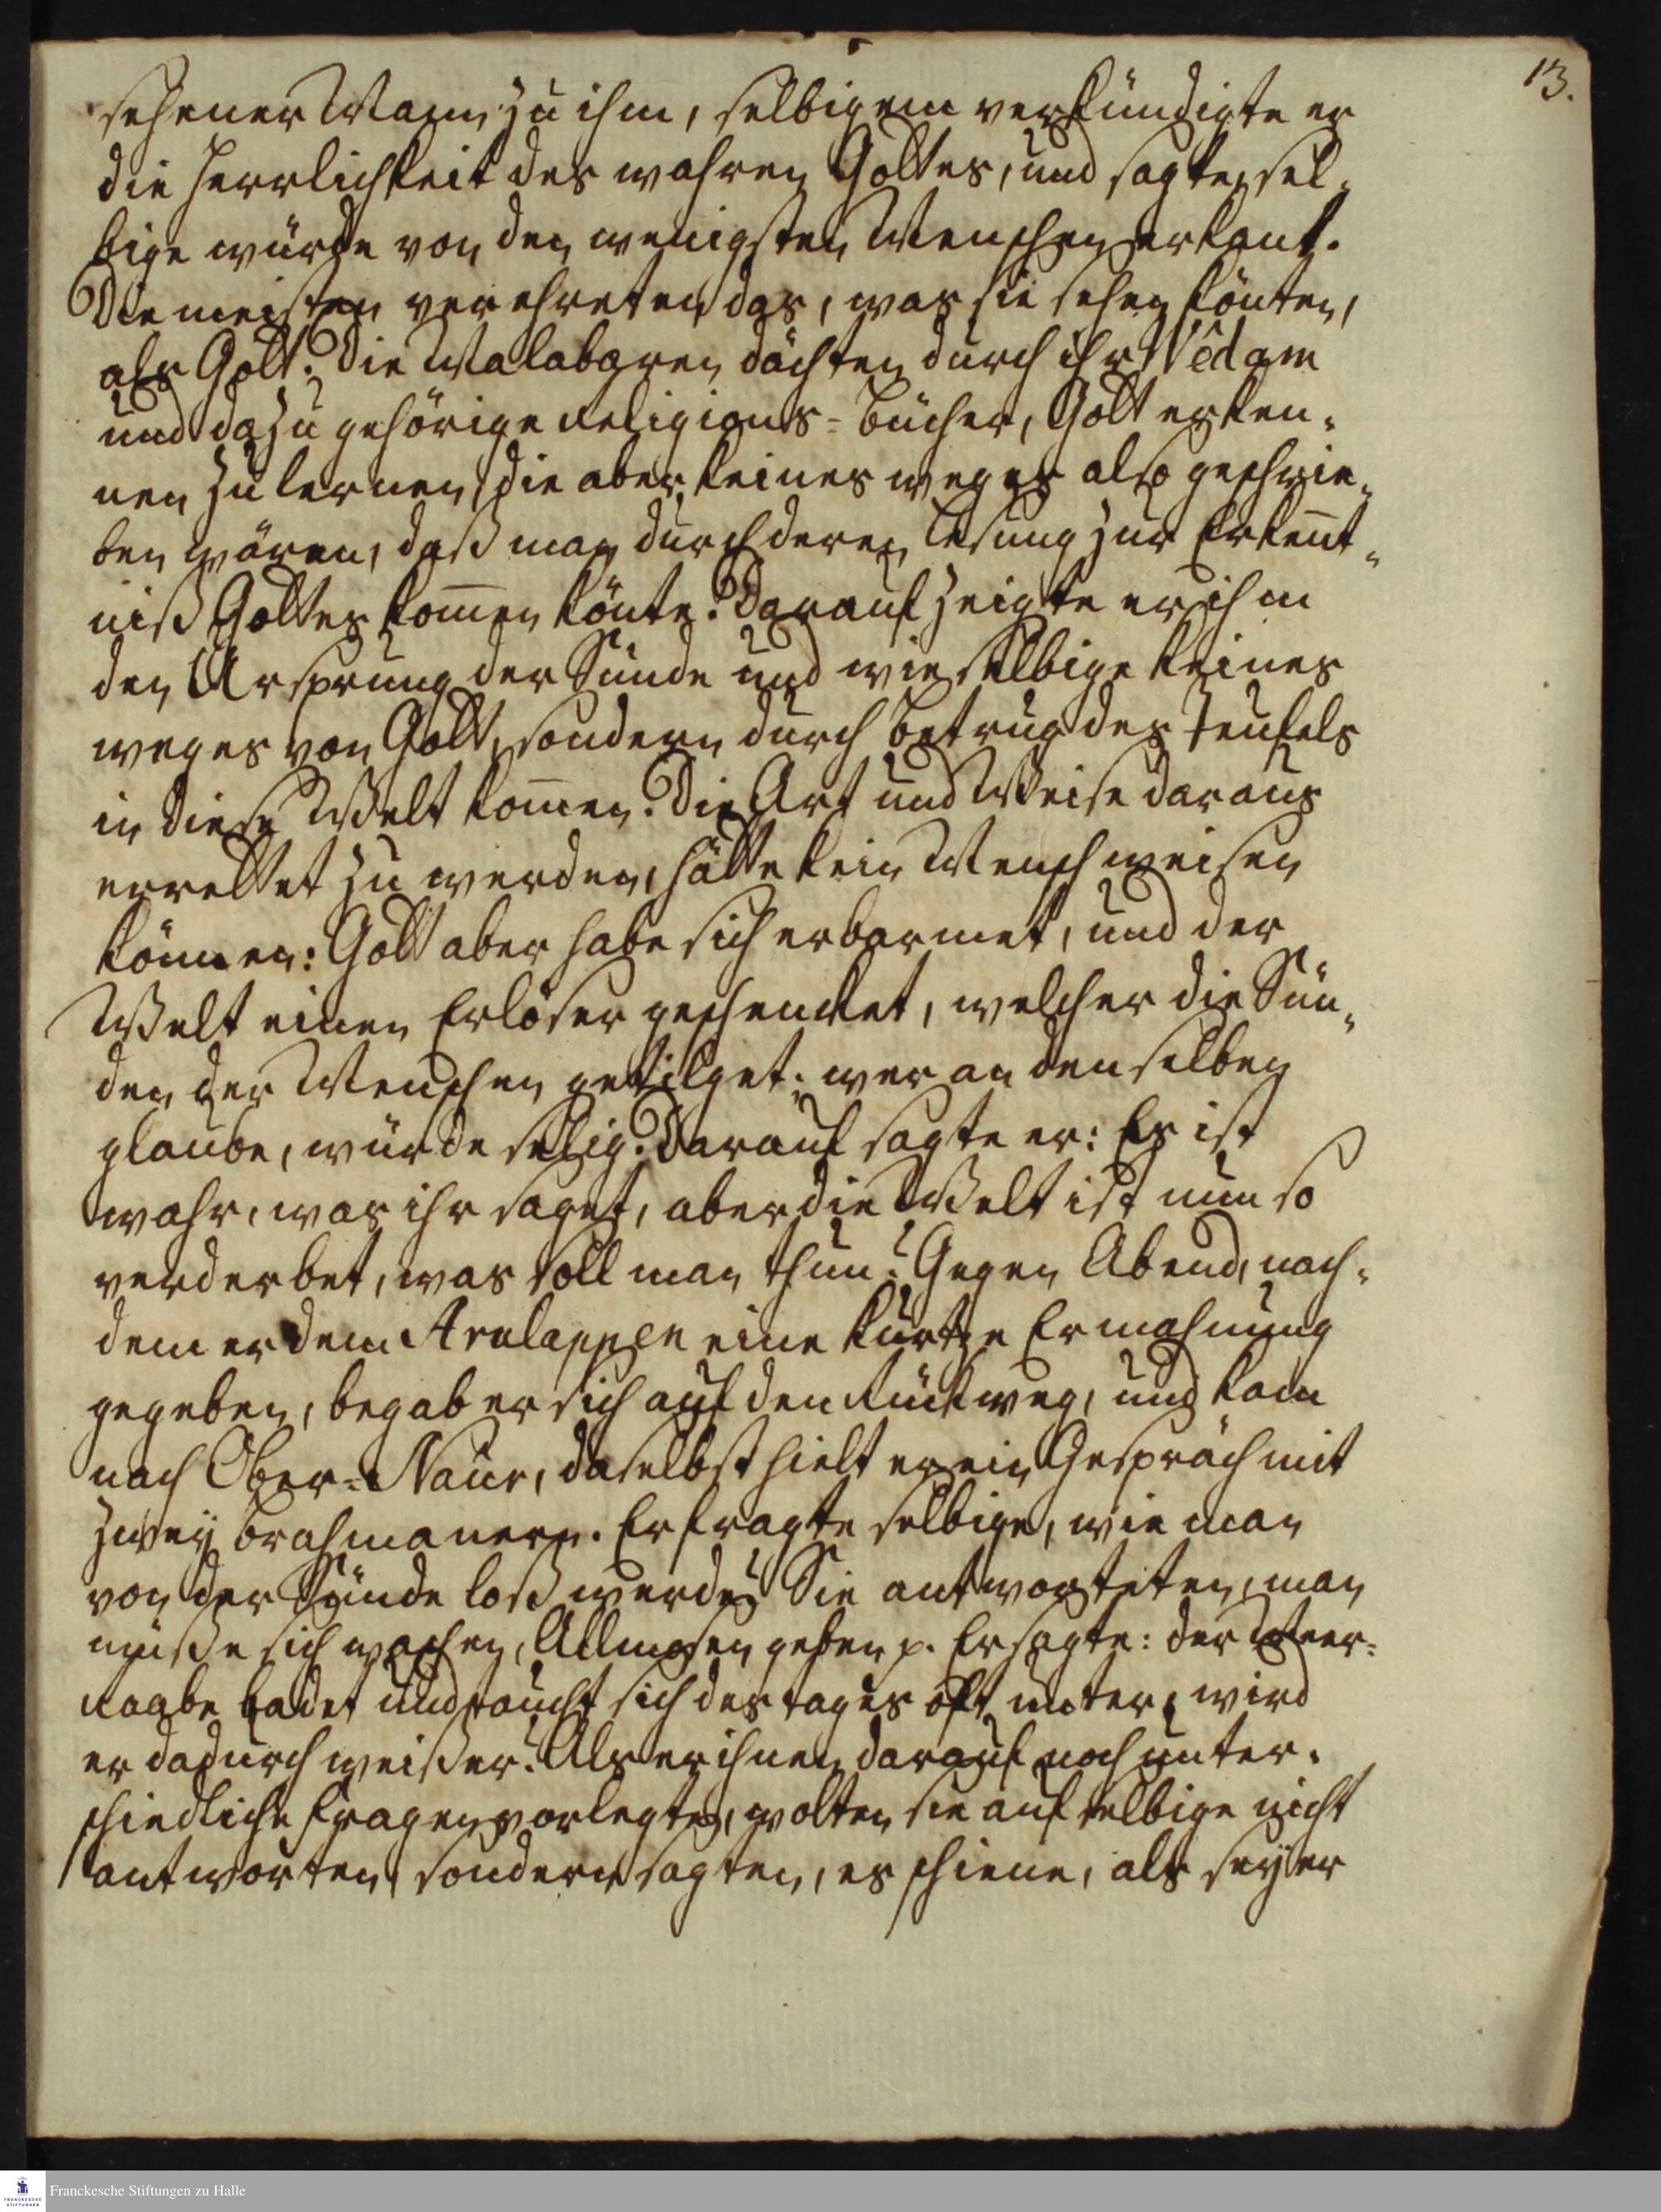 13.
sehener Mann zu ihm, selbigem verkündigte er
die Herrlichkeit des wahren Gottes, und sagte, sel-
bige würde von den wenigsten Menschen erkant.
Die meisten verehreten das, was sie sehen könten,
als Gott. Die Malabaren dächten durch ihr Vêdam
und dazu gehörige Religions-Bücher, Gott erken-
nen zu lernen, die aber keines weges also geschrie-
ben wären, daß man durch deren Lesung zur Erkent-
niß Gottes kom̄en könte. Darauf zeigte er ihm
den Ursprung der Sünde und wie selbige keines
weges von Gott, sondern durch Betrug des Teufels
in diese Welt kom̄en. Die Art und Weise daraus
errettet zu werden, hätte kein Mensch weisen
können: Gott aber habe sich erbarmet, und der
Welt einen Erlöser geschencket, welcher die Sün-
den der Menschen getilget; wer an denselben
glaube, würde selig. Darauf sagte er: Es ist
wahr, was ihr saget, aber die Welt ist nun so
verderbet, was soll man thun? Gegen Abend, nach-
dem er dem Arulappen eine kurtze Ermahnung
gegeben, begab er sich auf den Rückweg, und kam
nach Ober-Naúr, daselbst hielt er ein Gespräch mit
zwey Brahmanern. Er fragte selbige, wie man
von der Sünde loß werde? Sie antworteten, man
müße sich waschen, Allmosen geben p. Er sagte: der Meer-
Raabe badet und taucht sich des tages oft unter, wird
er dadurch weißer? Als er ihnen darauf noch unter-
schiedliche Fragen vorlegte, wolten sie auf selbige nicht
antworten, sondern sagten, es schiene, als sey er
Franckesche Stiftungen zu Halle